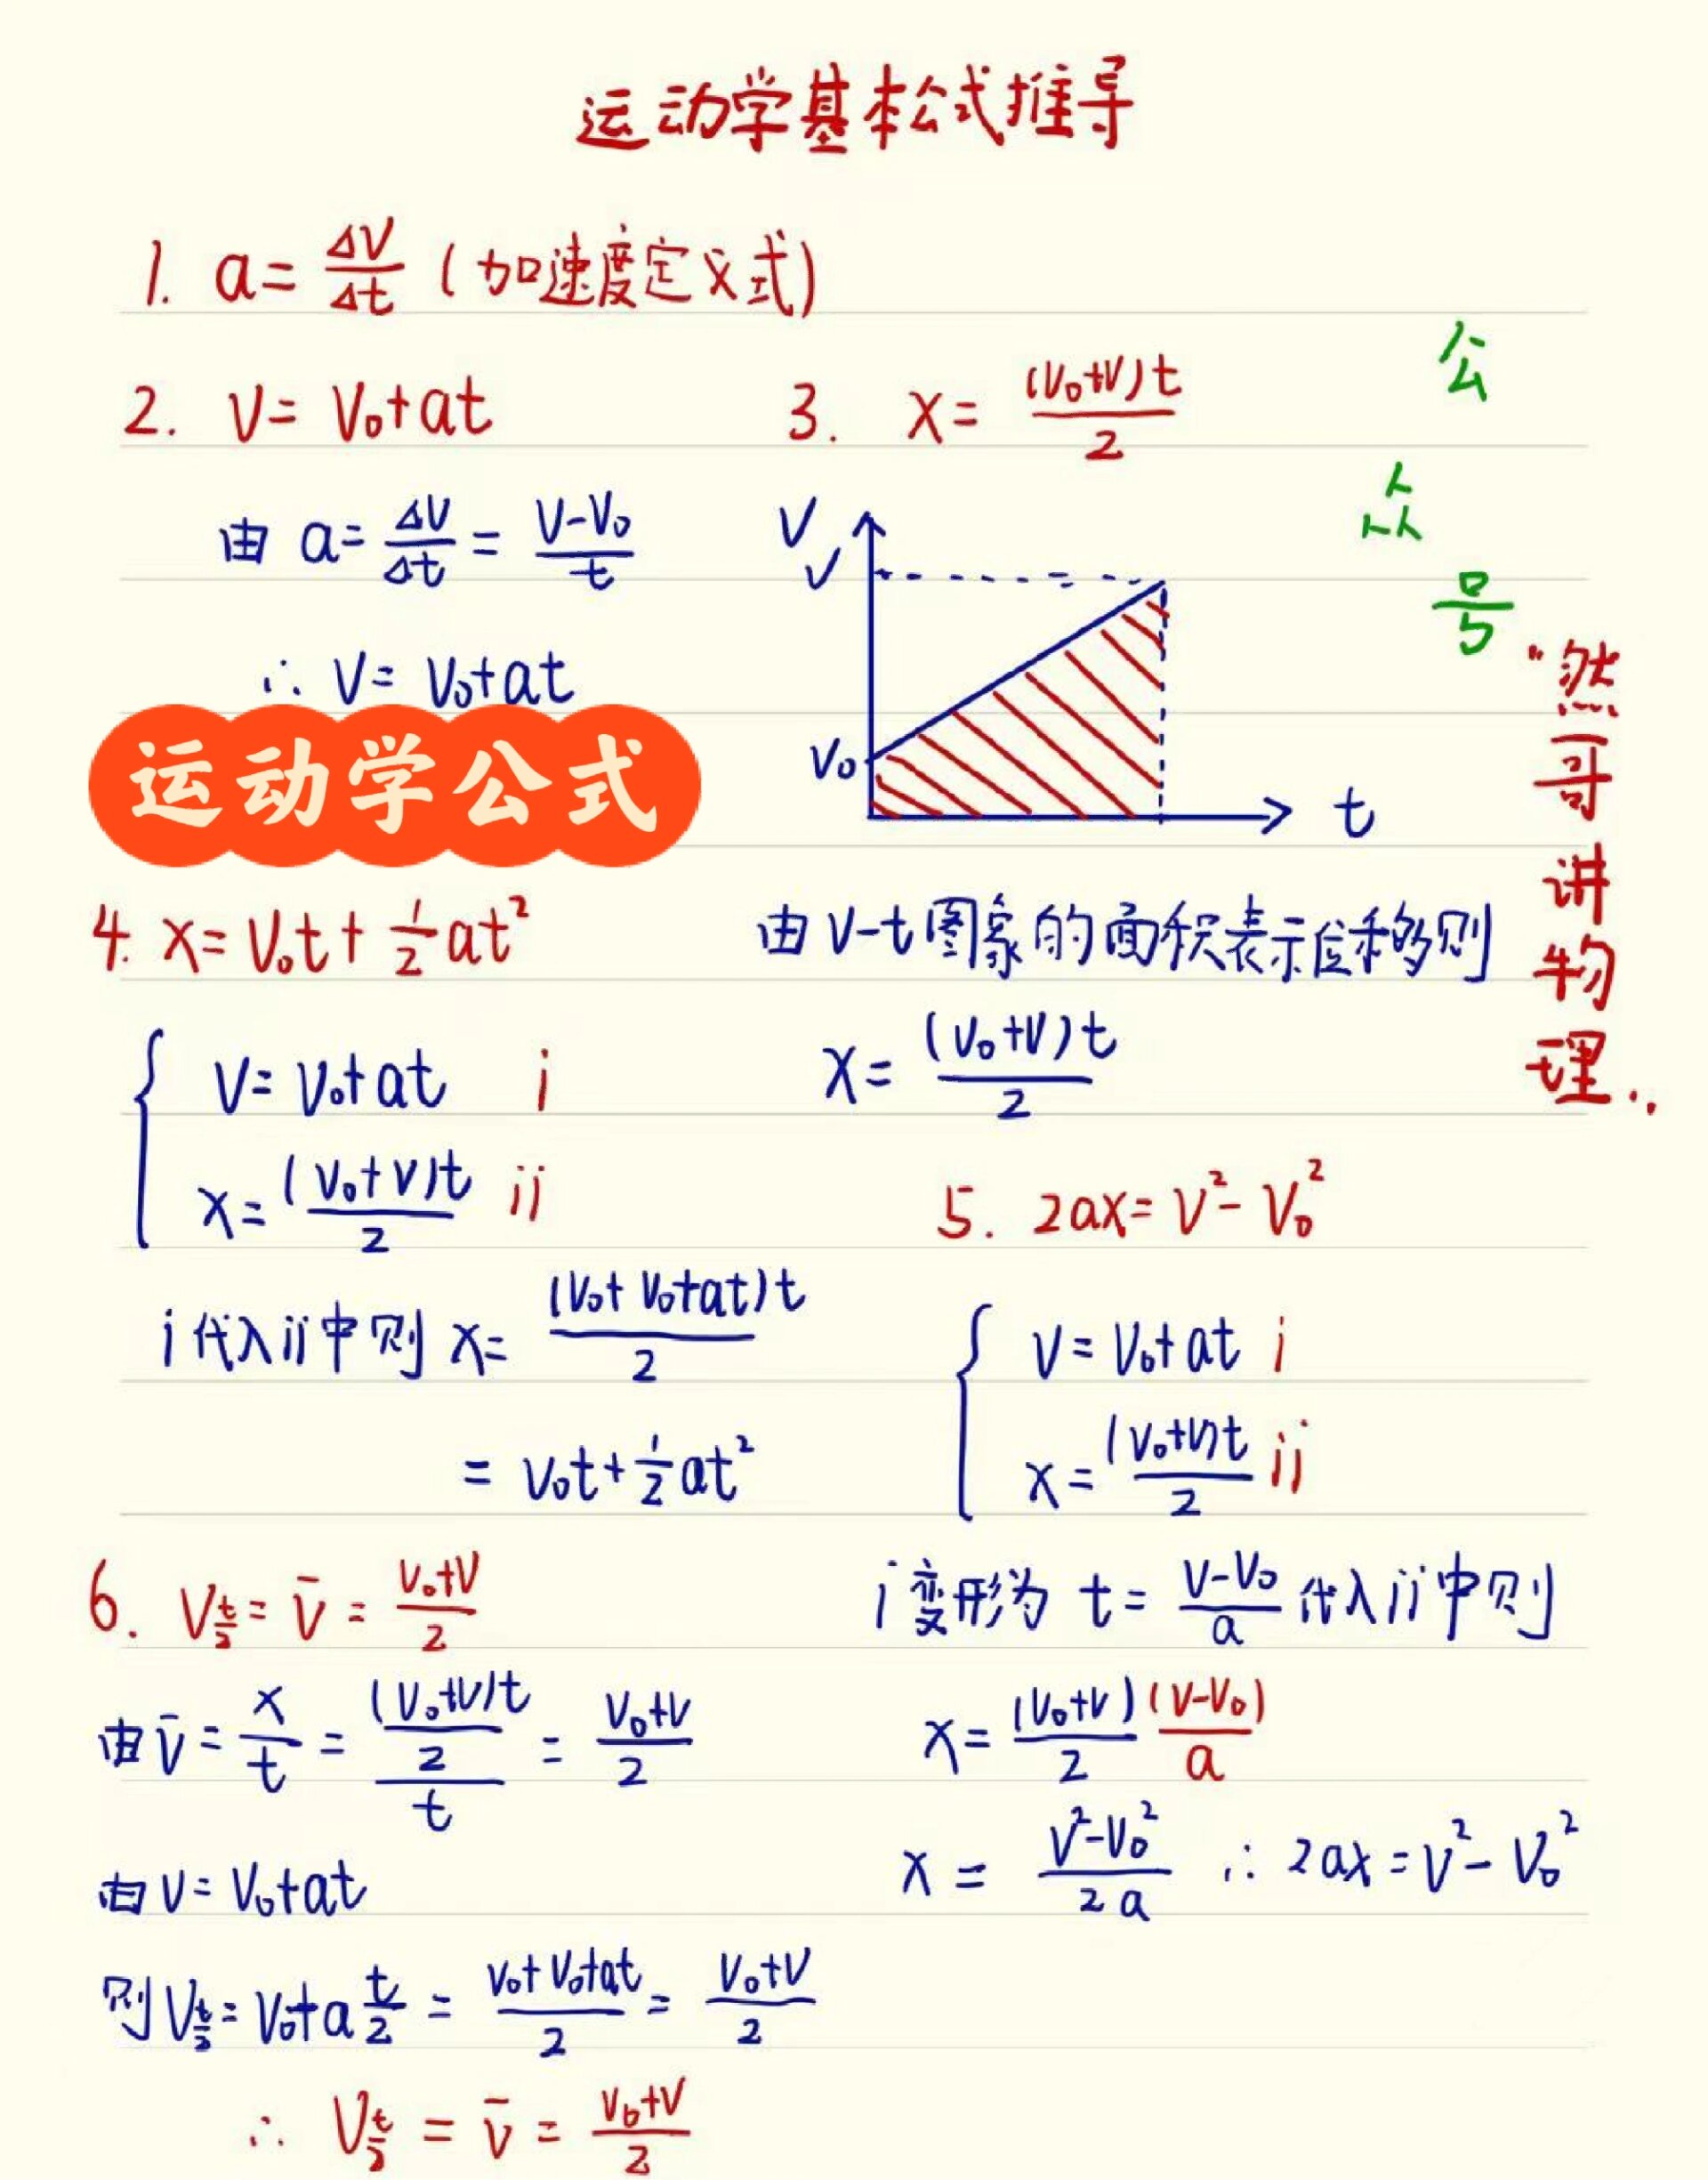 运动学基本公式推导
1. a= ΔV/Δt (加速度定义式)
2. V= V₀+at
由 a= ΔV/Δt = (V-V₀)/t
∴ V= V₀+at
运动学公式
3. x= (V₀+V)t/2
V
V
V₀
t
由V-t图象的面积表示位移则
x= (V₀+V)t/2
4. x= V₀t+ 1/2 at²
V= V₀+at i
x= (V₀+V)t/2 ii
i代入ii中则 x= (V₀+V₀+at)t/2
= V₀t+ 1/2 at²
5. 2ax= V²- V₀²
V= V₀+at i
x= (V₀+V)t/2 ii
i变形为 t= (V-V₀)/a 代入ii中则
x= (V₀+V)/2 (V-V₀)/a
x = (V²-V₀²)/2a ∴ 2ax=V²- V₀²
6. V_{t/2}= V̄ = (V₀+V)/2
由V̄= x/t = ((V₀+V)t/2)/t = (V₀+V)/2
由V= V₀+at
则V_{t/2}= V₀+a t/2 = (V₀+V₀+at)/2 = (V₀+V)/2
∴ V_{t/2} = V̄ = (V₀+V)/2
公
众
号
"然
哥
讲
物
理..